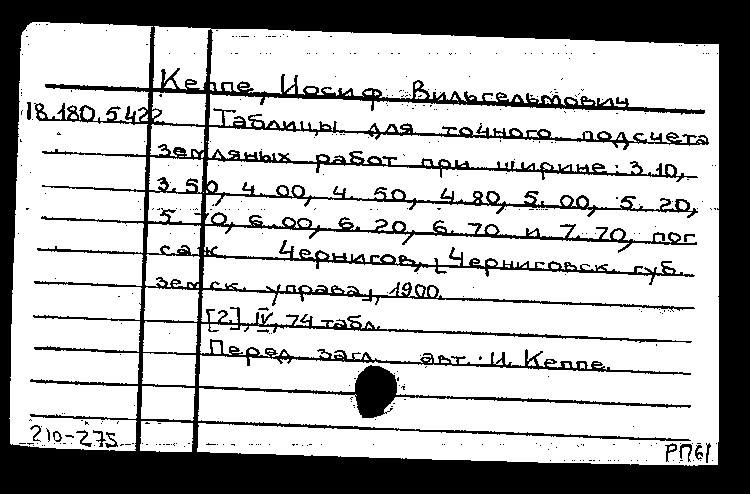 Кеппе, Иосиф Вильгельмович
18.180.5.422 Таблицы для точного подсчета
земляных работ при ширине: 3.10,
3.50, 4.00, 4.50, 4.80, 5.00, 5.20,
5.70, 6.00, 6.20, 6.70 и 7.70, пог
саж. Чернигов, [Черниговск. губ.
земск. управа], 1900.
[2], IV, 74 табл.
Перед загл. авт.: И. Кеппе.
210-275 РП61